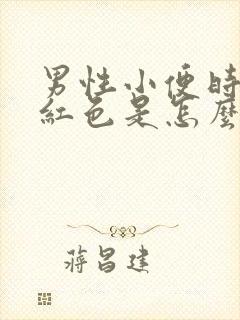 男性小便时
紅色是怎麼
蔣昌建